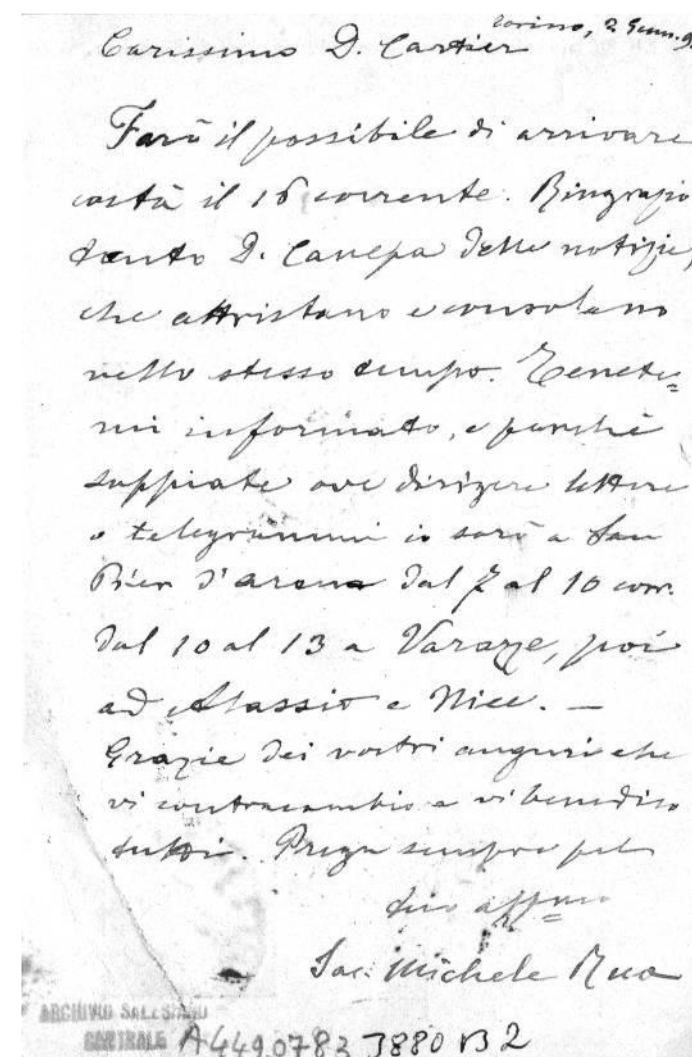 Torino, 2 Genn. 9
Carissimo D. Cartier
Farò il possibile di arrivare
costà il 16 corrente. Ringrazio
tanto D. Canepa delle notizie,
che attristano e consolano
nello stesso tempo. Tenete=
mi informato, e perchè
sappiate ove dirigere lettere
o telegrammi io sarò a San
Pier d'arena dal 7 al 10 corr.
dal 10 al 13 a Varazze, poi
ad Alassio e Nice. —
Grazie dei vostri auguri che
vi contraccambio e vi benedico
tutti. Prega sempre pel
tuo aff.mo
Sac. Michele Rua
ARCHIVIO SALESIANO
CENTRALE A4490782 3880 B2